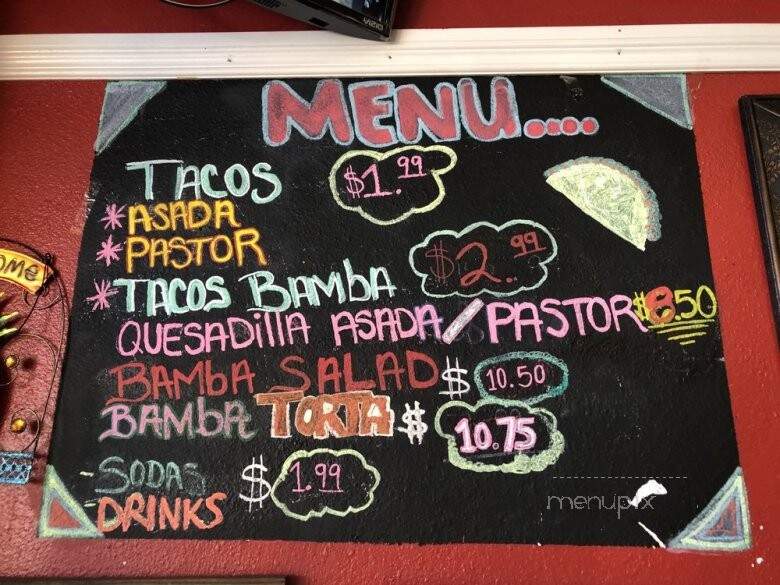 VIZIO
MENU....
TACOS $1.99
*ASADA
*PASTOR
*TACOS BAMBA $2.99
QUESADILLA ASADA/PASTOR $8.50
BAMBA SALAD $ 10.50
BAMBA TORTA $ 10.75
-SODAS $ 1.99
-DRINKS
menupix